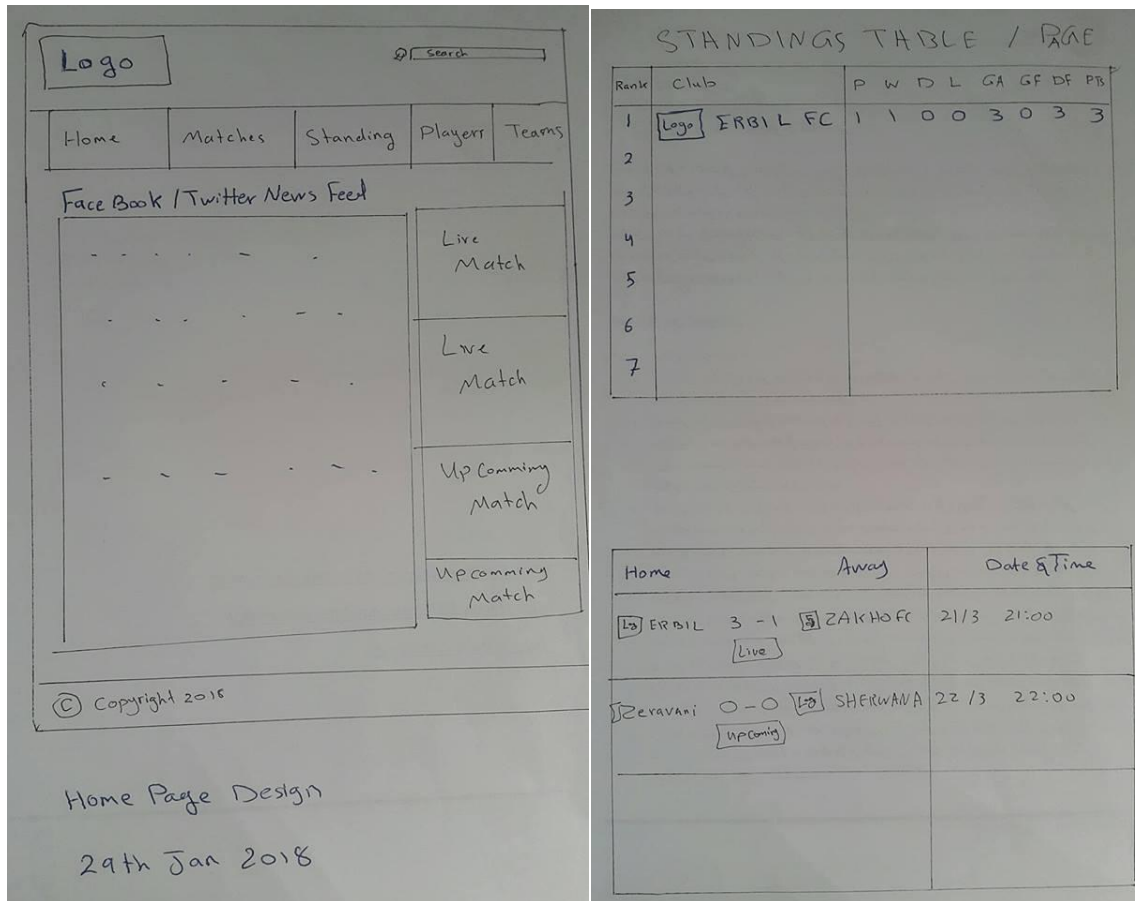 Logo
Search
Home Matches Standing Players Teams
Face Book / Twitter News Feed
Live
Match
Live
Match
Up Comming
Match
Upcomming
Match
© Copyright 2018
Home Page Design
29th Jan 2018
STANDINGS TABLE / PAGE
Rank Club P W D L GA GF DF PTS
1 Logo ERBIL FC 1 1 0 0 3 0 3 3
2
3
4
5
6
7
Home Away Date & Time
Lg ERBIL 3 - 1 ZAKHO FC 21/3 21:00
Live
Zeravani 0 - 0 Log SHERWANA 22/3 22:00
Upcoming